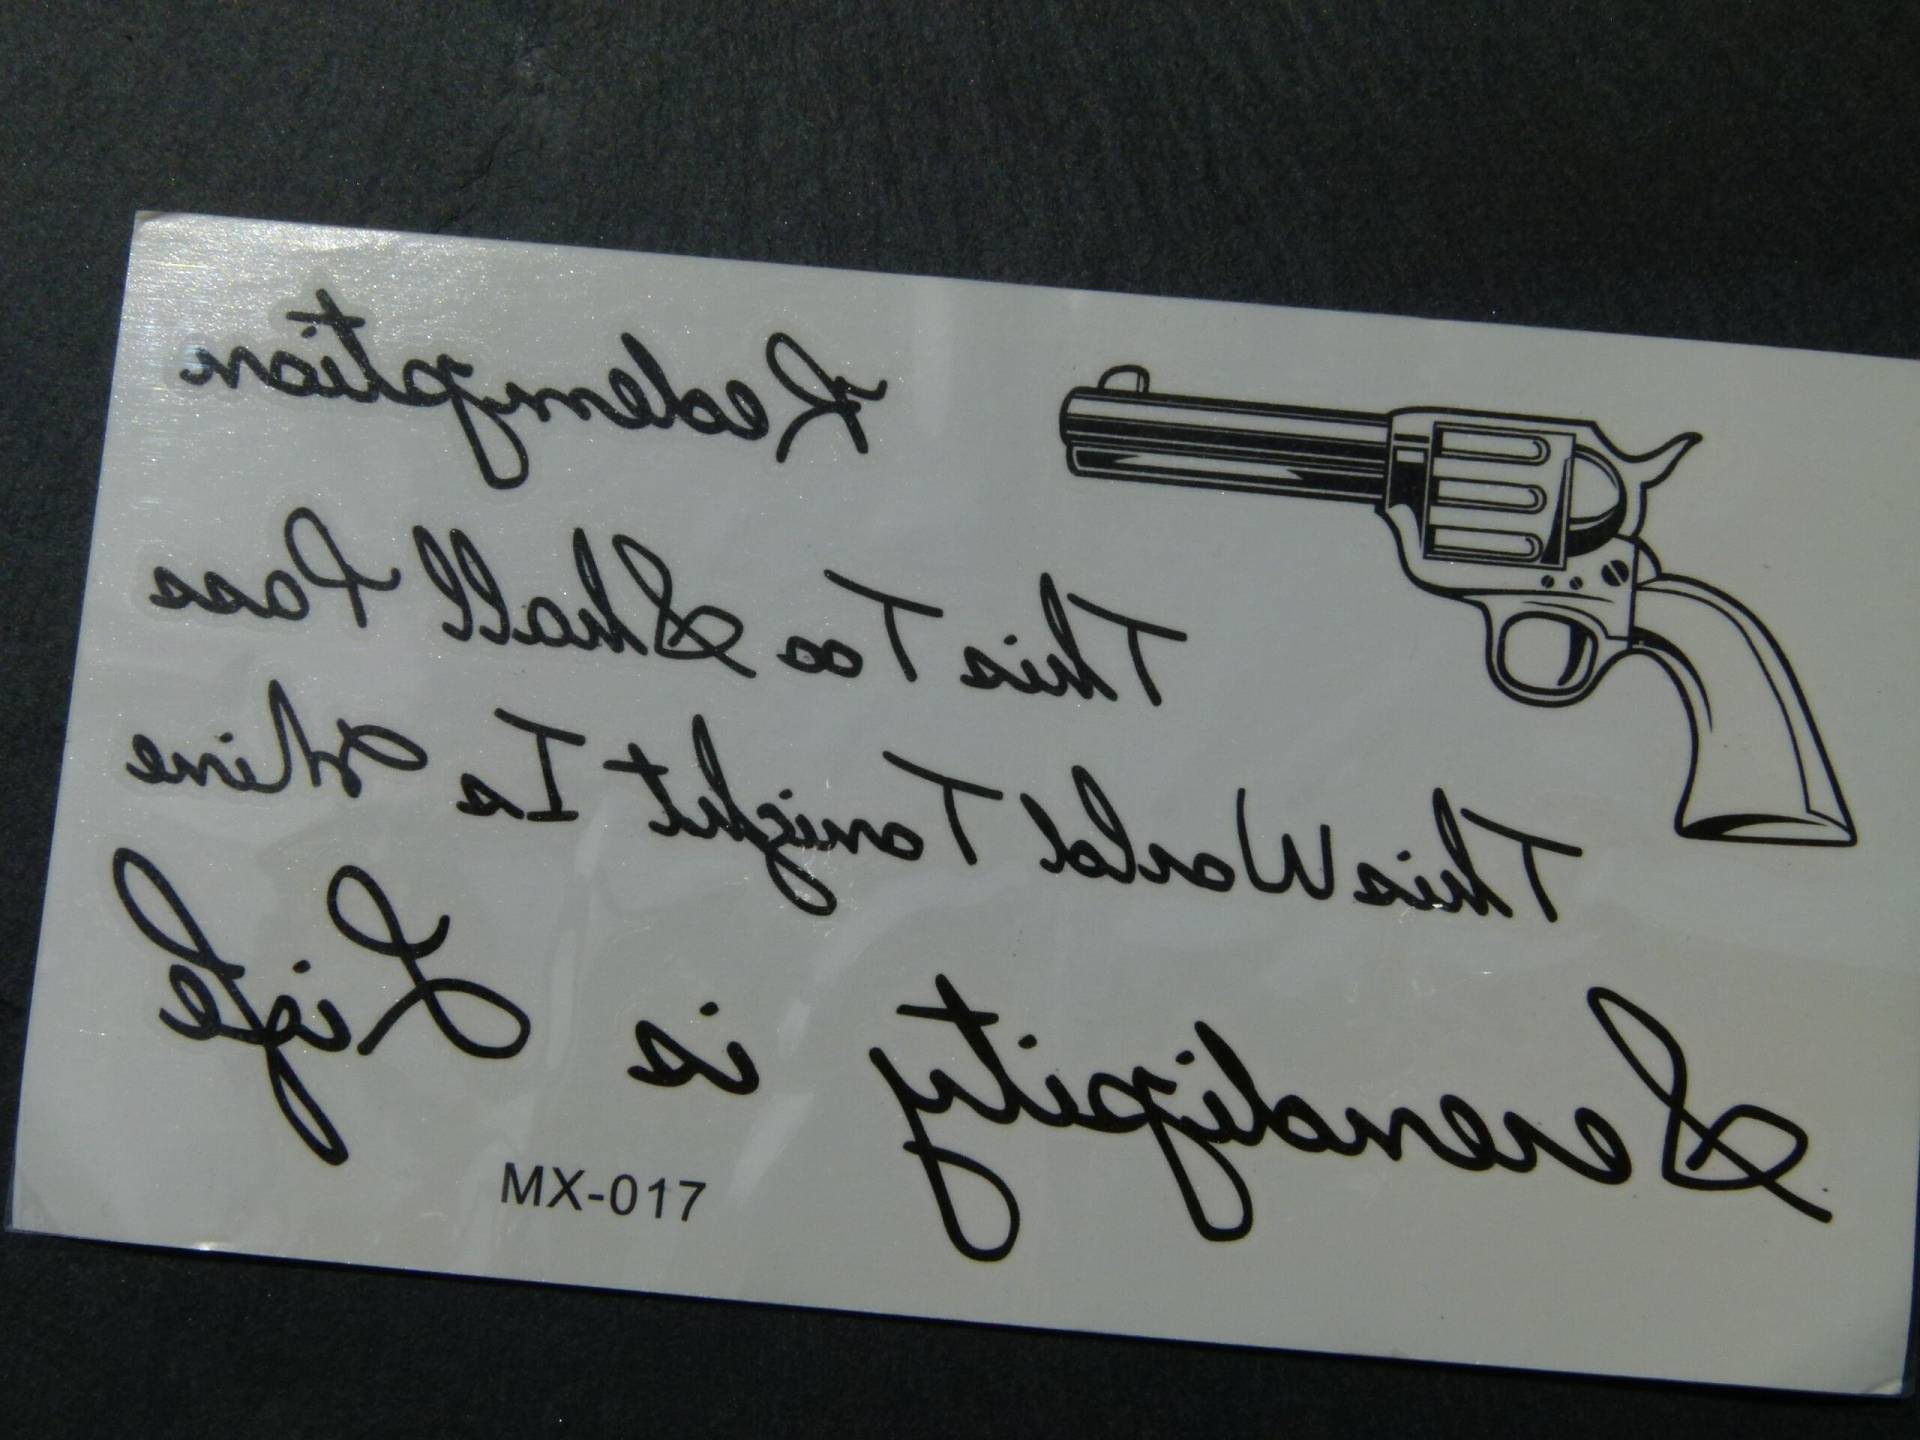 Redemption
This Too Shall Pass
This World Tonight Is Mine
Serendipity is Life
MX-017